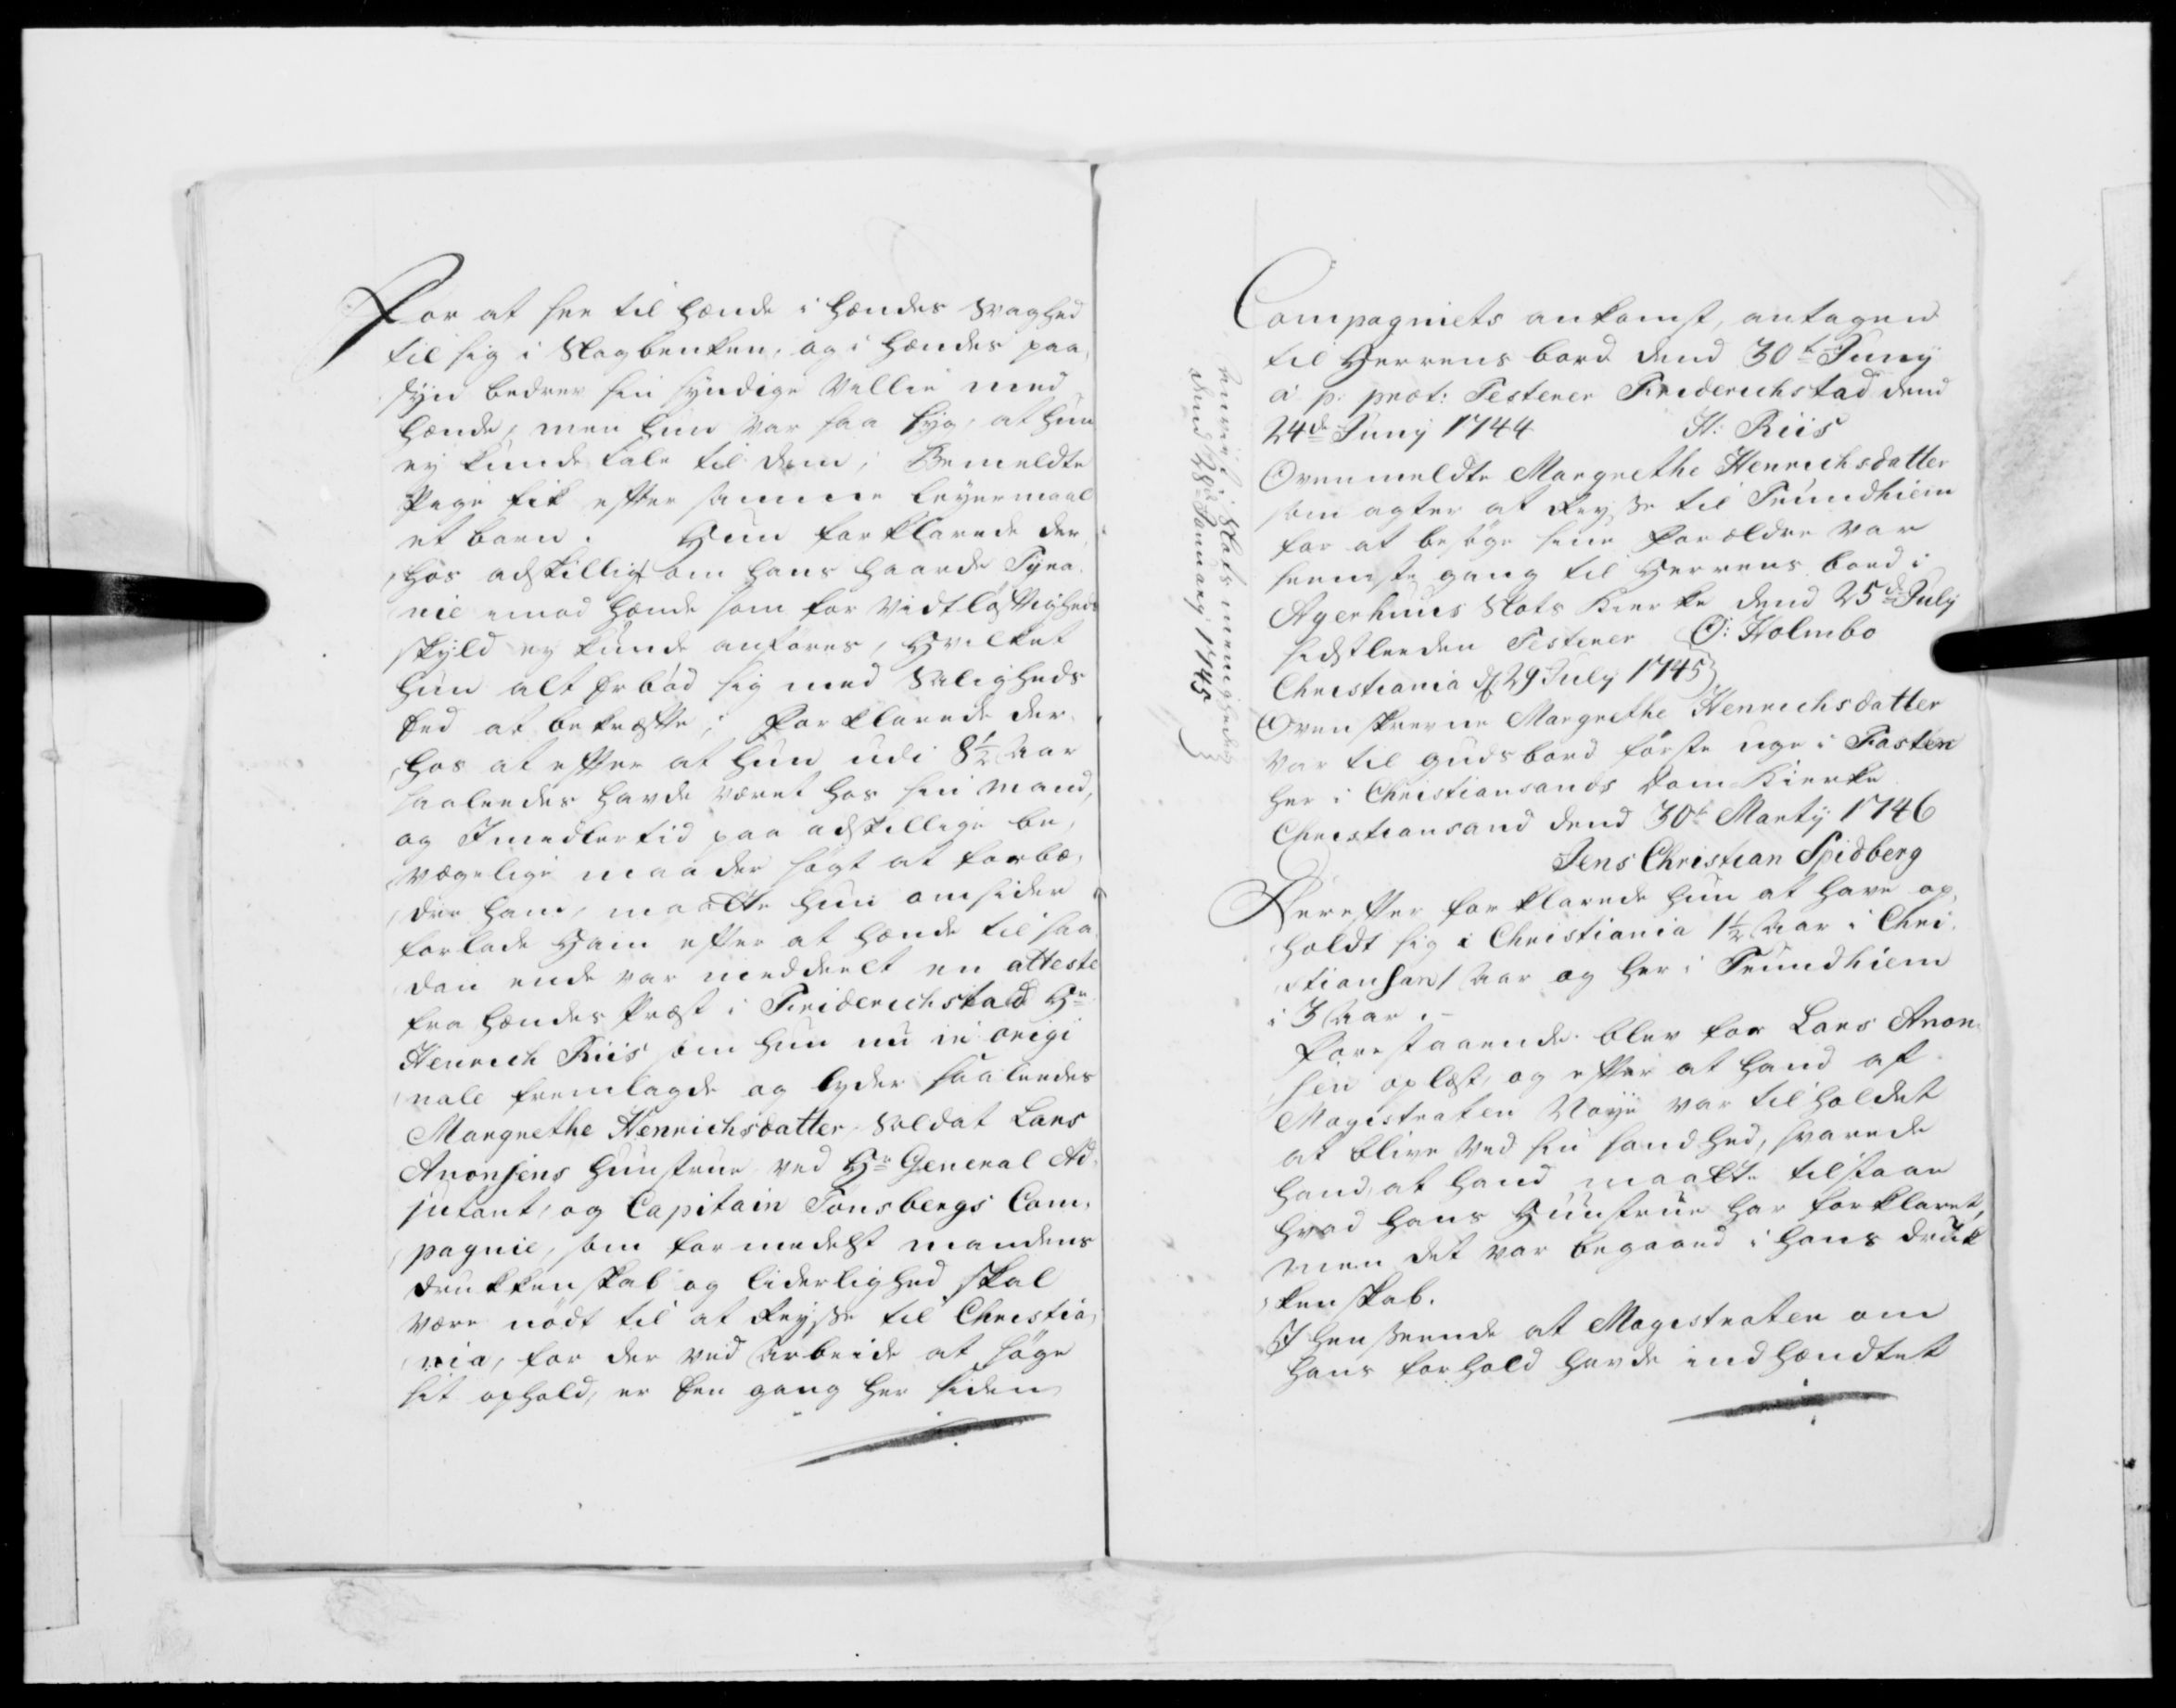 For at see til hende i hendes Svaghed
til sig i Slagbenken, og i hendes paa,
syn bedrev sin syndige Villie med
hende, men hun var saa syg, at hun
ej kunde tale til dem; Bemeldte
Pige fik efter samme Leyermaal
et barn. Hun forklarede der
hos adskilligt om hans haarde Tyra
nie imod hende som for Vidtløftigheds
skyld ej kunde anføres, hvilket
hun alt erbød sig med Saligheds
Eed at bekræfte; Forklarede der
hos at efter at hun udi 8½ Aar
saaledes havde været hos sin Mand,
og Imidlertid paa adskillige be,
vægelige maader søgt at forbe,
dre ham, maatte hun omsider
forlade Ham efter at hende til saa
dan ende var meddeelt en atteste
fra hendes Præst i Friderichstad Hr
Henrich Riis som hun nu in origi
nale fremlagde og lyder saaledes
Margrethe Henrichsdatter, Soldat Lars
Aronsens Hustrue ved Hr General Ad,
jutant, og Capitain Tønsbergs Com,
pagnie, som formedelst mandens
drukkenskab og liderlighed skal
være nødt til at Reyse til Christia,
nia, for der ved Arbeide at søge
sit ophold, er Een gang her siden
Compagniets ankomst, antagen
til Herrens bord dend 30te Juny
a p: præt: Testerer Friderichstad dend
24de Juny 1744 H: Riis
Ovenmeldte Margrethe Henrichsdatter
som agter at Reyse til Trundhiem
for at besøge sine Forældre var
seeniste gang til Herrens bord i
Agerhuus Slots Kierke dend 25de July
sidstleeden Testerer O: Holmbo
Christiania d 29 July 1745
Ovenskrevne Margrethe Henrichsdatter
var til Guds bord første uge i Fasten
her i Christiansands Dom Kierke
Christiansand dend 30te Marty 1746
Jens Christian Spidberg
Derefter forklarede hun at have op,
holdt sig i Christiania 1½ Aar i Chri,
stiansan 1 Aar og her i Trundhiem
i 3 Aar.
Forestaaende blev for Lars Aron
sen oplæst, og efter at hand af
Magistraten Nøye var tilholdet
at blive ved sin sandhed, svarede
hand, at hand maatte tilstaae
hvad hans Hustrue har forklaret,
men det var begaaed i hans druk
kenskab.
I henseende at Magistraten om
hans forhold havde indhændtet
Slots meenigheden
dend 28de January 1745